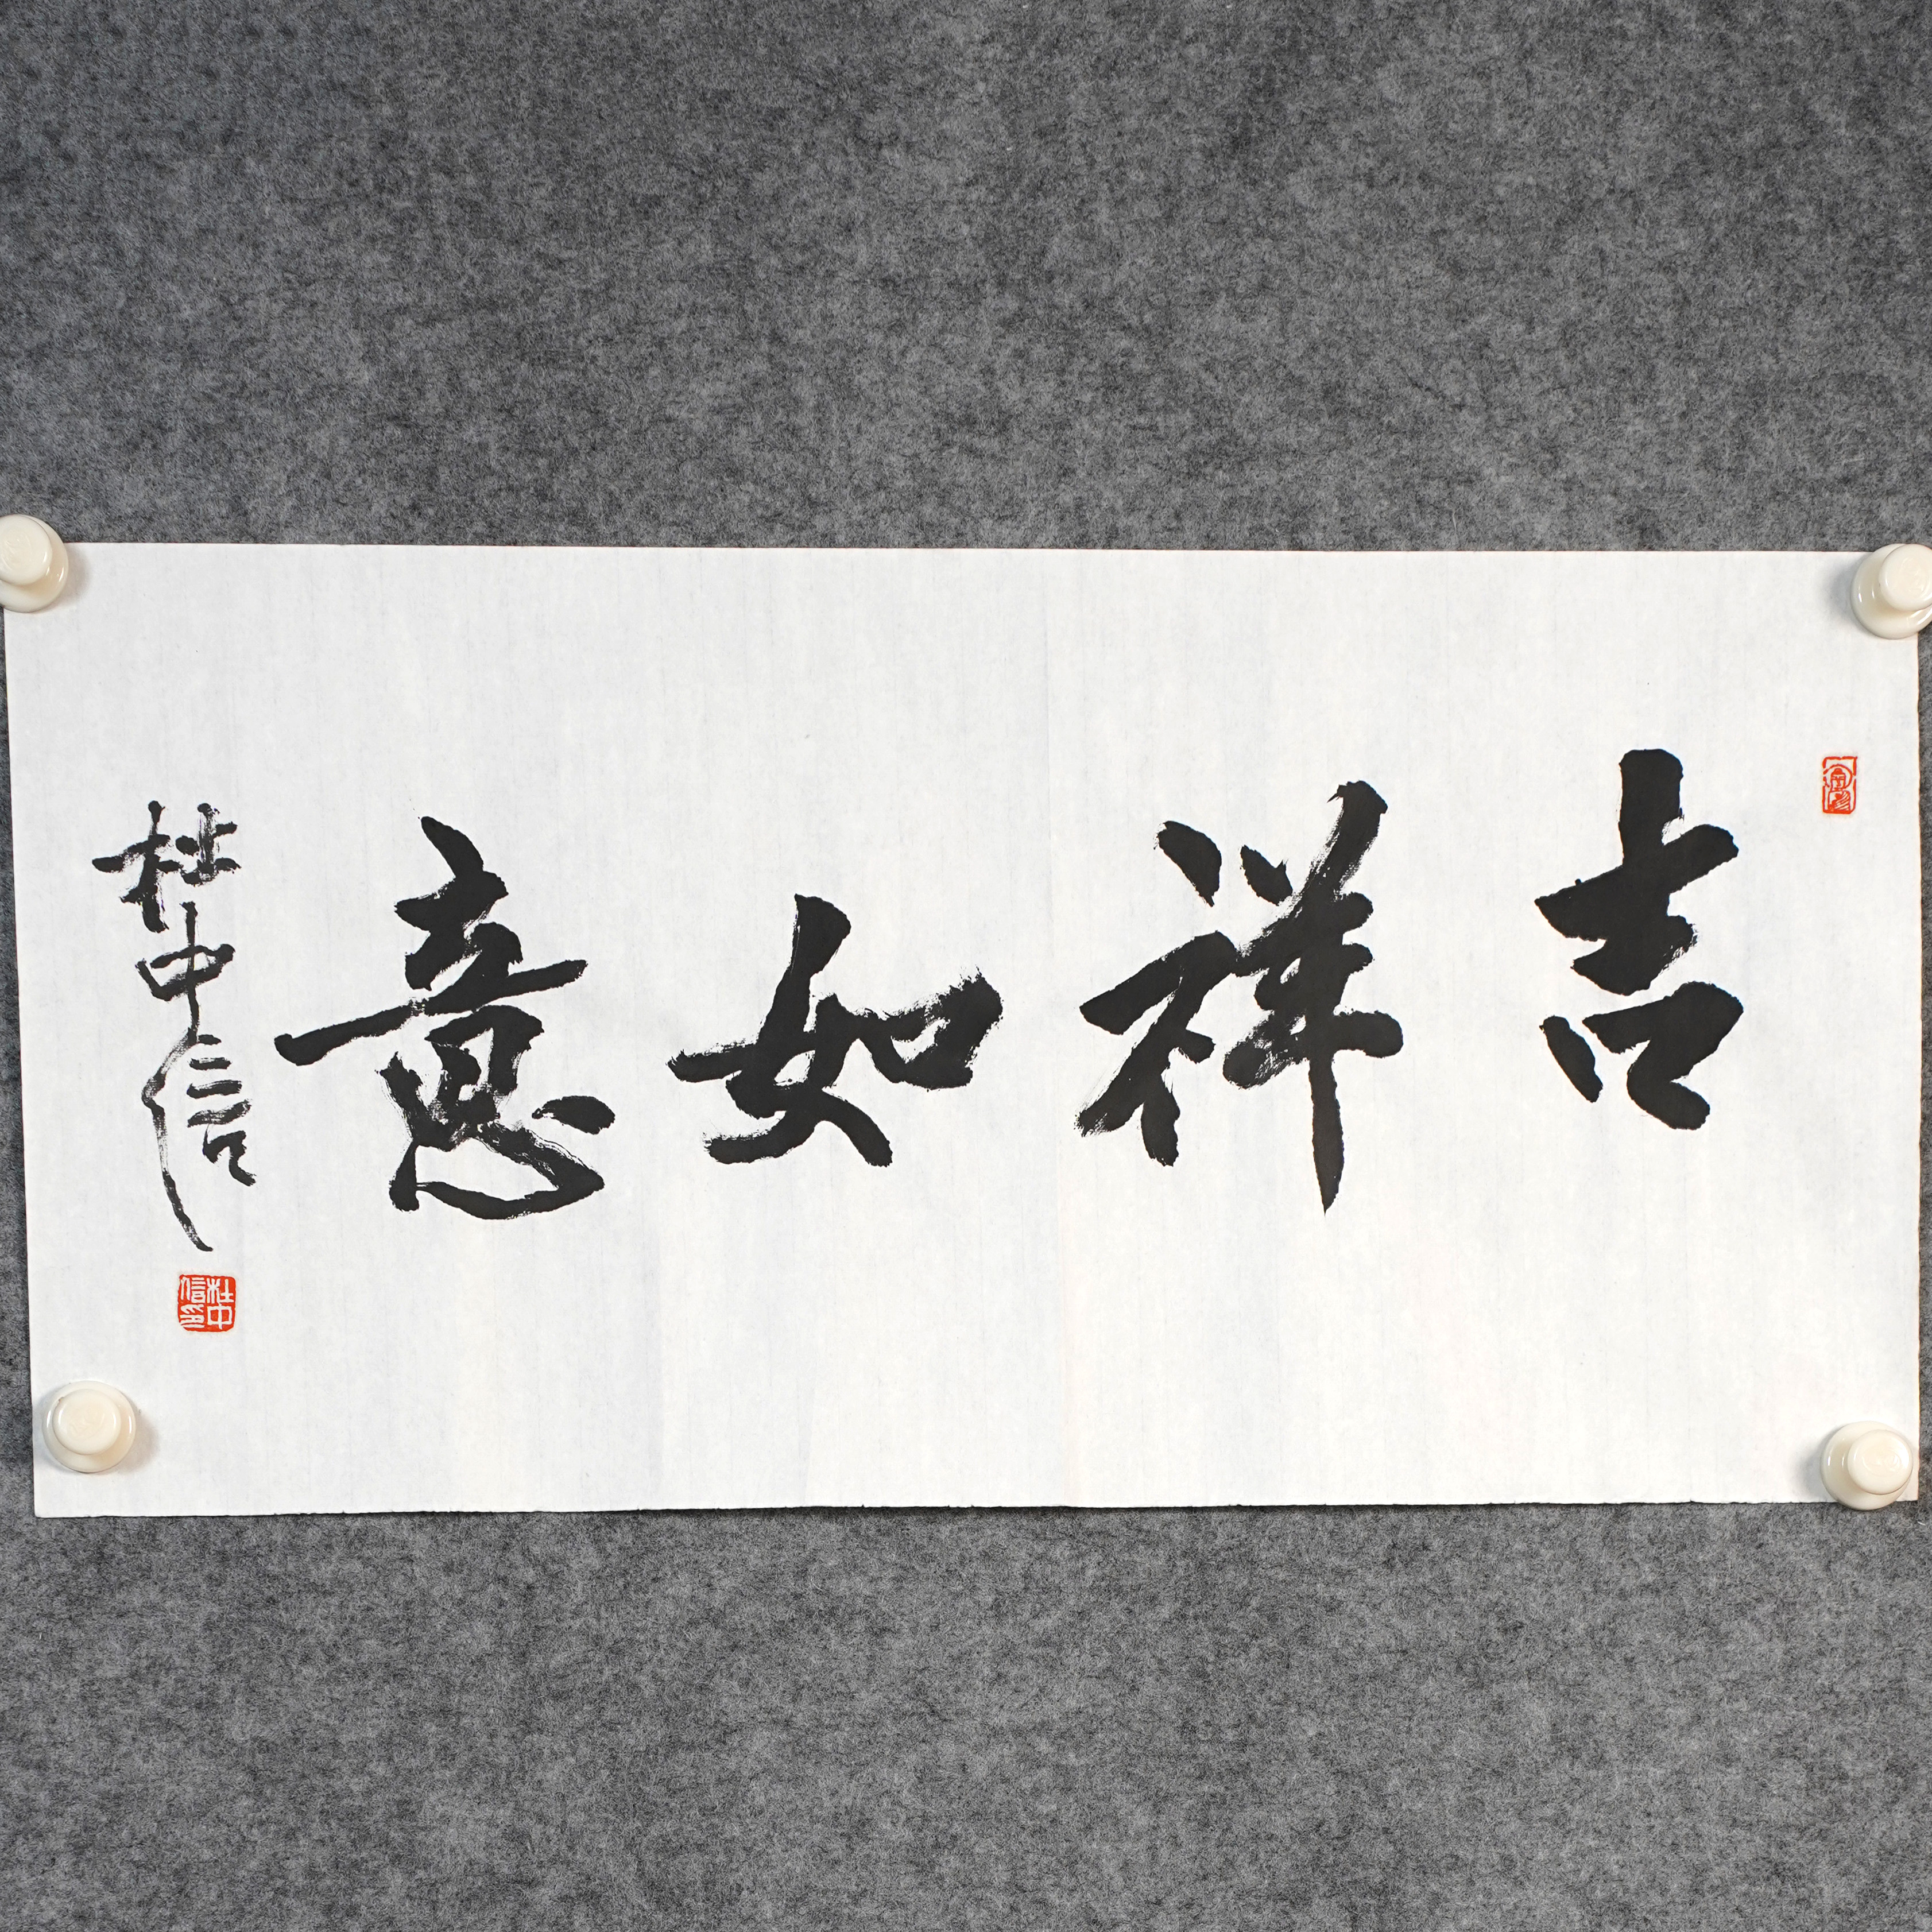 吉祥如意
杜中信
杜中信印